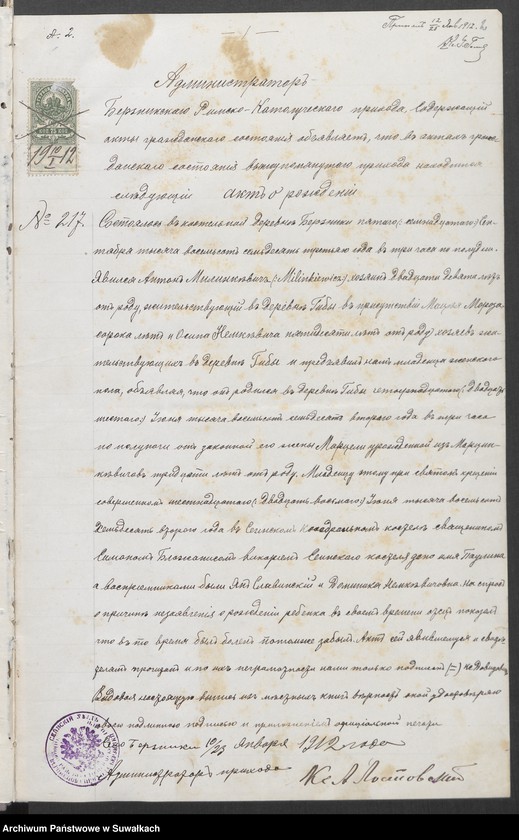 № 2.
— 1 —
Администраторъ
Бержникскаго Римско-Католическаго прихода, содержащій
акты гражданскаго состоянія объявляетъ, что въ актахъ граж-
данскаго состоянія вышеупомянутаго прихода находится
слѣдующій актъ о рожденіи
КОП. 75 КОП.
1912
№ 217.
Состоялось въ деревнѣ Бержники пятаго (семнадцатаго) Сен-
тября тысяча восемьсотъ семьдесятъ третьяго года въ три часа по полудни.
Явился Антонъ Милинкевичъ (Milinkiewicz) хозяинъ двадцати девяти лѣтъ
отъ роду, жительствующій въ деревнѣ Гибы въ присутствіи Мороза
сорока лѣтъ и Осипа Немкевича пятидесяти лѣтъ отъ роду хозяевъ жи-
тельствующихъ въ деревнѣ Гибы и предъявилъ намъ младенца женскаго
пола, объявляя, что онъ родился въ деревнѣ Гибы четырнадцатаго (двадцать
шестаго) Іюня тысяча восемьсотъ семьдесятъ втораго года въ три часа
по полуночи отъ законной его жены Марцели урожденной изъ Марцин-
кевичовъ тридцати лѣтъ отъ роду. Младенцу этому при святомъ крещеніи
совершенномъ шестнадцатаго (двадцать восьмаго) Іюня тысяча восемьсотъ
семьдесятъ втораго года въ Сейнскомъ костелѣ священникомъ
Симономъ викаріемъ Сейнскаго костела дано имя Паулина
а воспріемниками были Янъ Славинскій и Доминика Немкевичовна. На спросъ
о причинѣ незаявленія о рожденіи ребенка въ своемъ времени отецъ показалъ
что въ то время былъ боленъ потомъ забылъ. Актъ сей являющемуся и свидѣ-
телямъ прочитанъ и по ихъ неграмотности нами только подписанъ
выпись изъ книгъ вѣрность оной удостовѣряю
подписью и приложеніемъ официальной печати
Бержники 10/23 Января 1912 года
Администраторъ прихода
Кс А
Archiwum Państwowe w Suwałkach